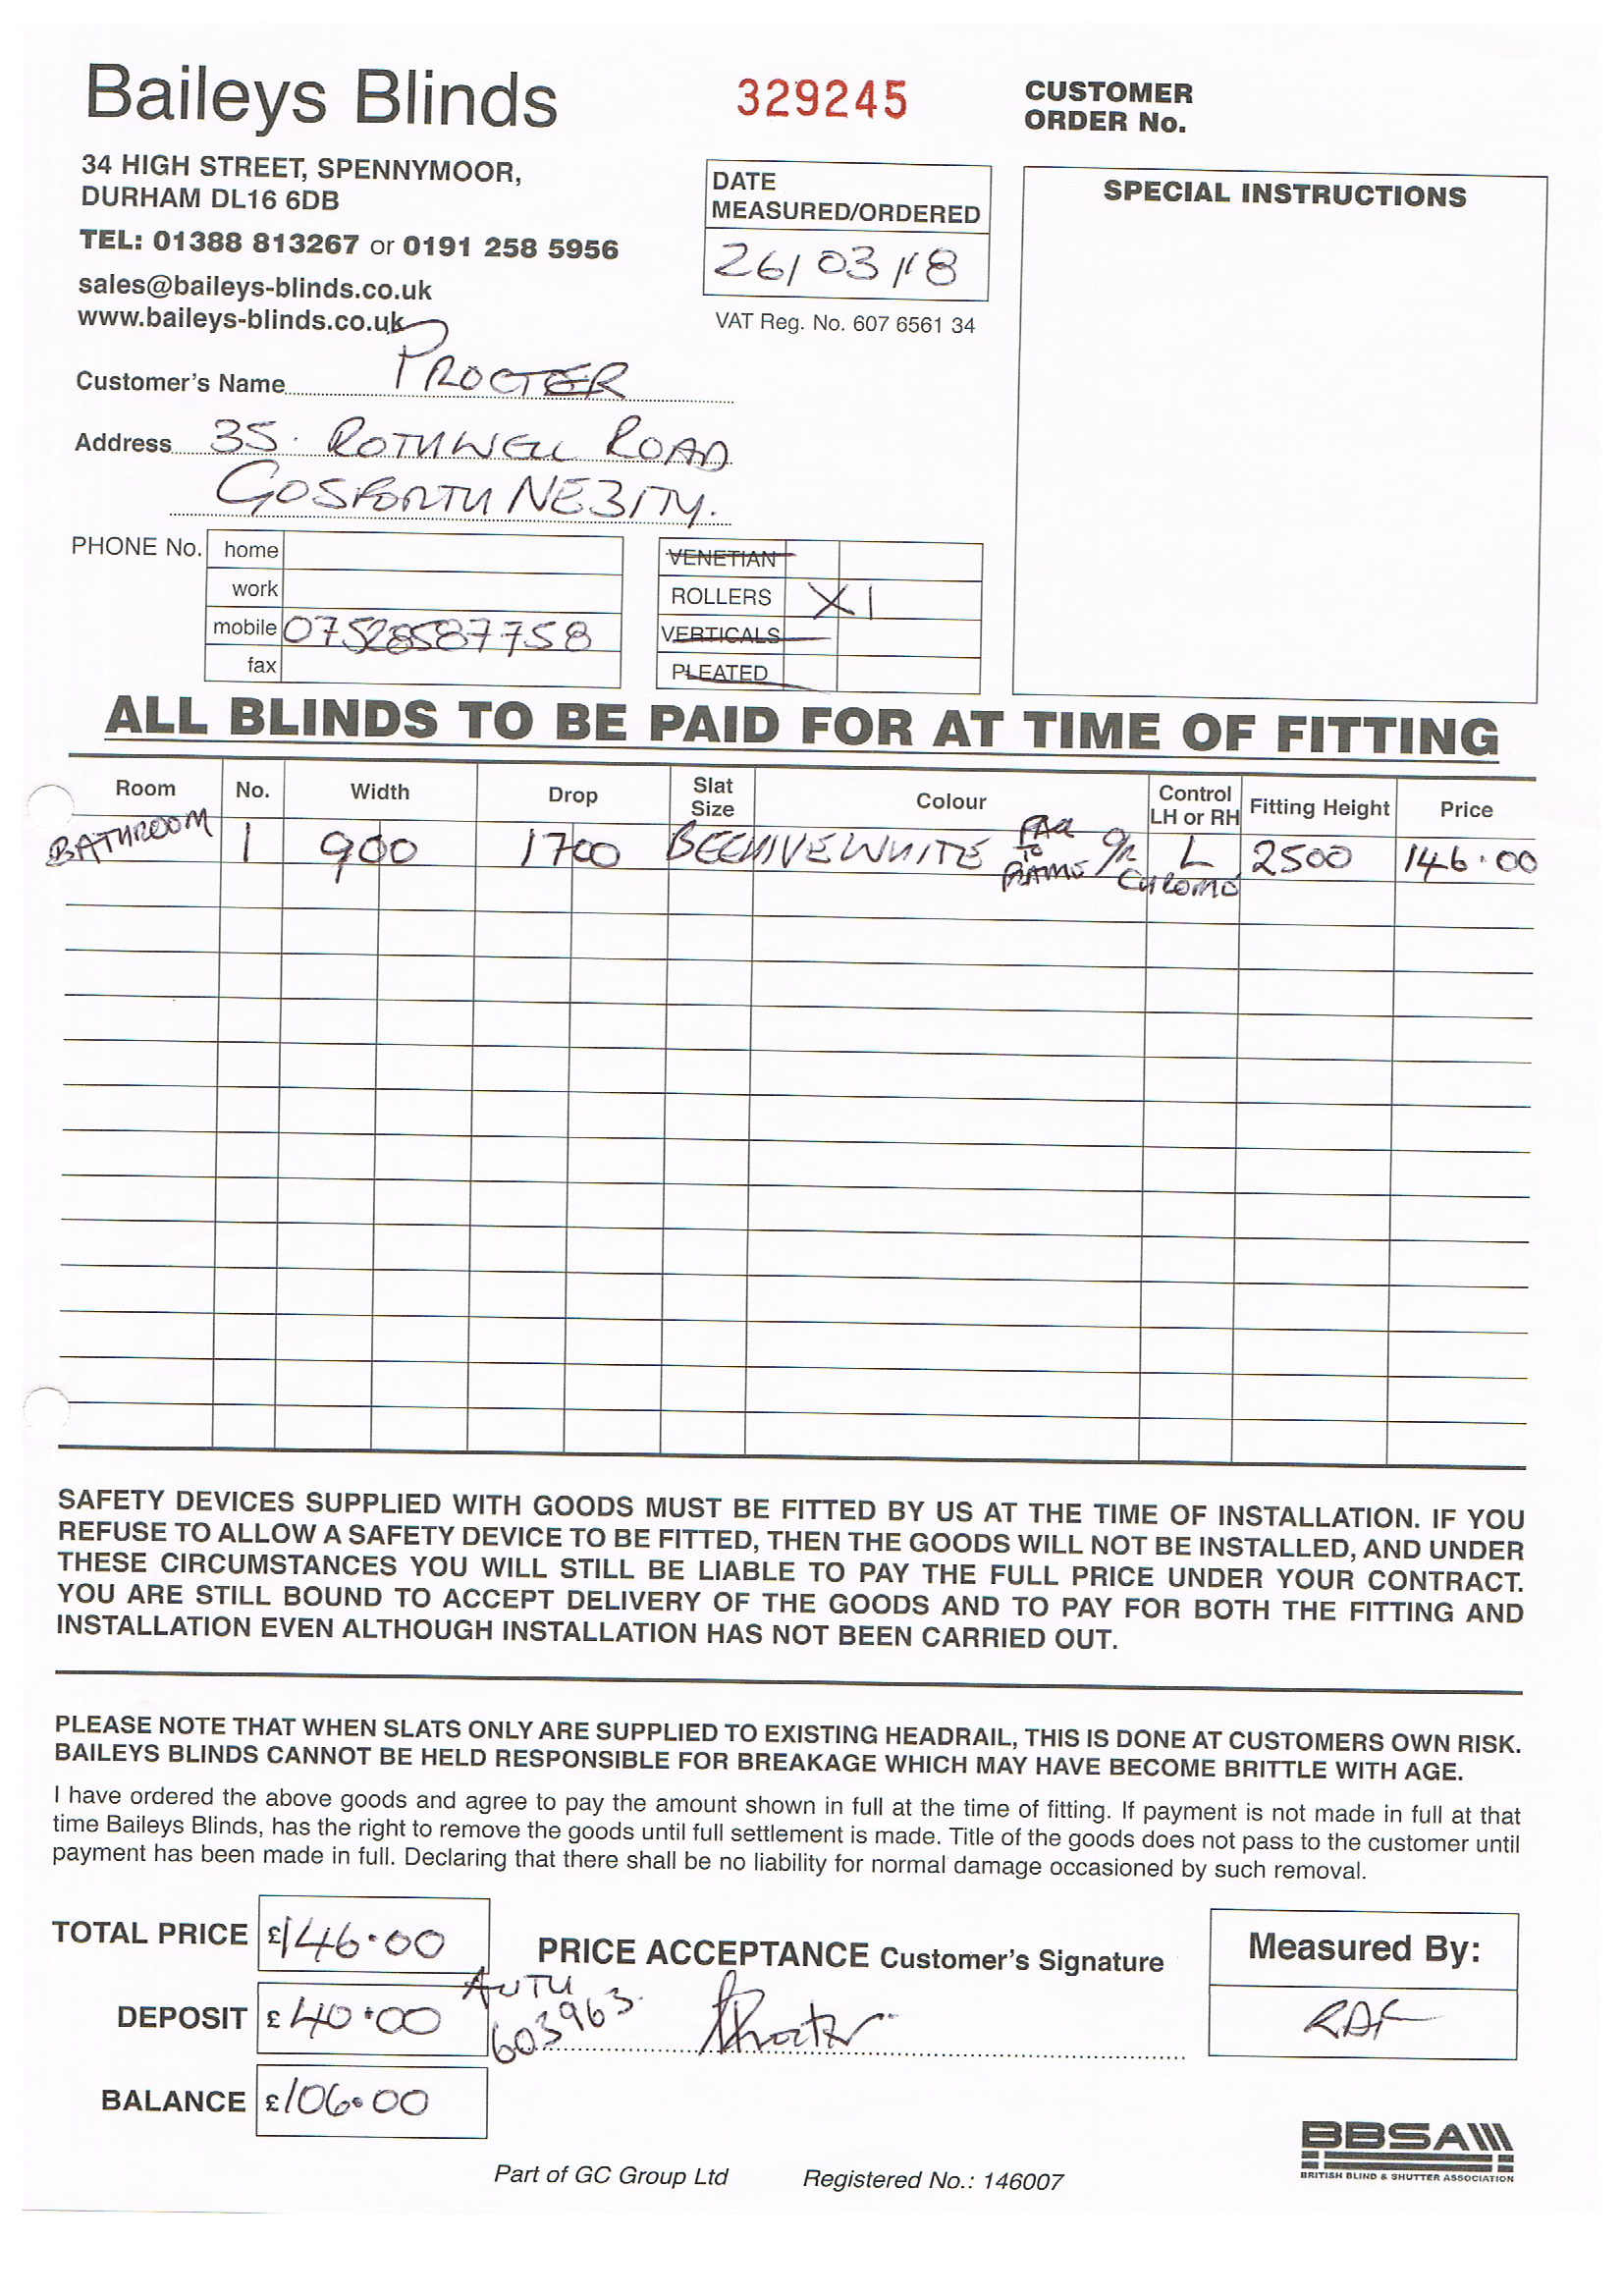 Baileys Blinds
34 HIGH STREET, SPENNYMOOR,
DURHAM DL16 6DB
TEL: 01388 813267 or 0191 258 5956
sales@baileys-blinds.co.uk
www.baileys-blinds.co.uk
329245
DATE
MEASURED/ORDERED
26/03/18
VAT Reg. No. 607 6561 34
CUSTOMER
ORDER No.
SPECIAL INSTRUCTIONS
Customer's Name PROCTER
Address 35. ROTHWELL ROAD
GOSFORTH NE3 1TY.
PHONE No.
home
work
mobile 07528587758
fax
VENETIAN
ROLLERS X 1
VERTICALS
PLEATED
ALL BLINDS TO BE PAID FOR AT TIME OF FITTING
Room No. Width Drop Slat Size Colour Control LH or RH Fitting Height Price
BATHROOM 1 900 1700 BEEHIVE WHITE TO FRAME CHROME L 2500 146.00
SAFETY DEVICES SUPPLIED WITH GOODS MUST BE FITTED BY US AT THE TIME OF INSTALLATION. IF YOU
REFUSE TO ALLOW A SAFETY DEVICE TO BE FITTED, THEN THE GOODS WILL NOT BE INSTALLED, AND UNDER
THESE CIRCUMSTANCES YOU WILL STILL BE LIABLE TO PAY THE FULL PRICE UNDER YOUR CONTRACT.
YOU ARE STILL BOUND TO ACCEPT DELIVERY OF THE GOODS AND TO PAY FOR BOTH THE FITTING AND
INSTALLATION EVEN ALTHOUGH INSTALLATION HAS NOT BEEN CARRIED OUT.
PLEASE NOTE THAT WHEN SLATS ONLY ARE SUPPLIED TO EXISTING HEADRAIL, THIS IS DONE AT CUSTOMERS OWN RISK.
BAILEYS BLINDS CANNOT BE HELD RESPONSIBLE FOR BREAKAGE WHICH MAY HAVE BECOME BRITTLE WITH AGE.
I have ordered the above goods and agree to pay the amount shown in full at the time of fitting. If payment is not made in full at that
time Baileys Blinds, has the right to remove the goods until full settlement is made. Title of the goods does not pass to the customer until
payment has been made in full. Declaring that there shall be no liability for normal damage occasioned by such removal.
TOTAL PRICE £146.00
DEPOSIT £40.00
BALANCE £106.00
AUTH
603963.
PRICE ACCEPTANCE Customer's Signature
Procter
Measured By:
Part of GC Group Ltd
Registered No.: 146007
BBSA
BRITISH BLIND & SHUTTER ASSOCIATION